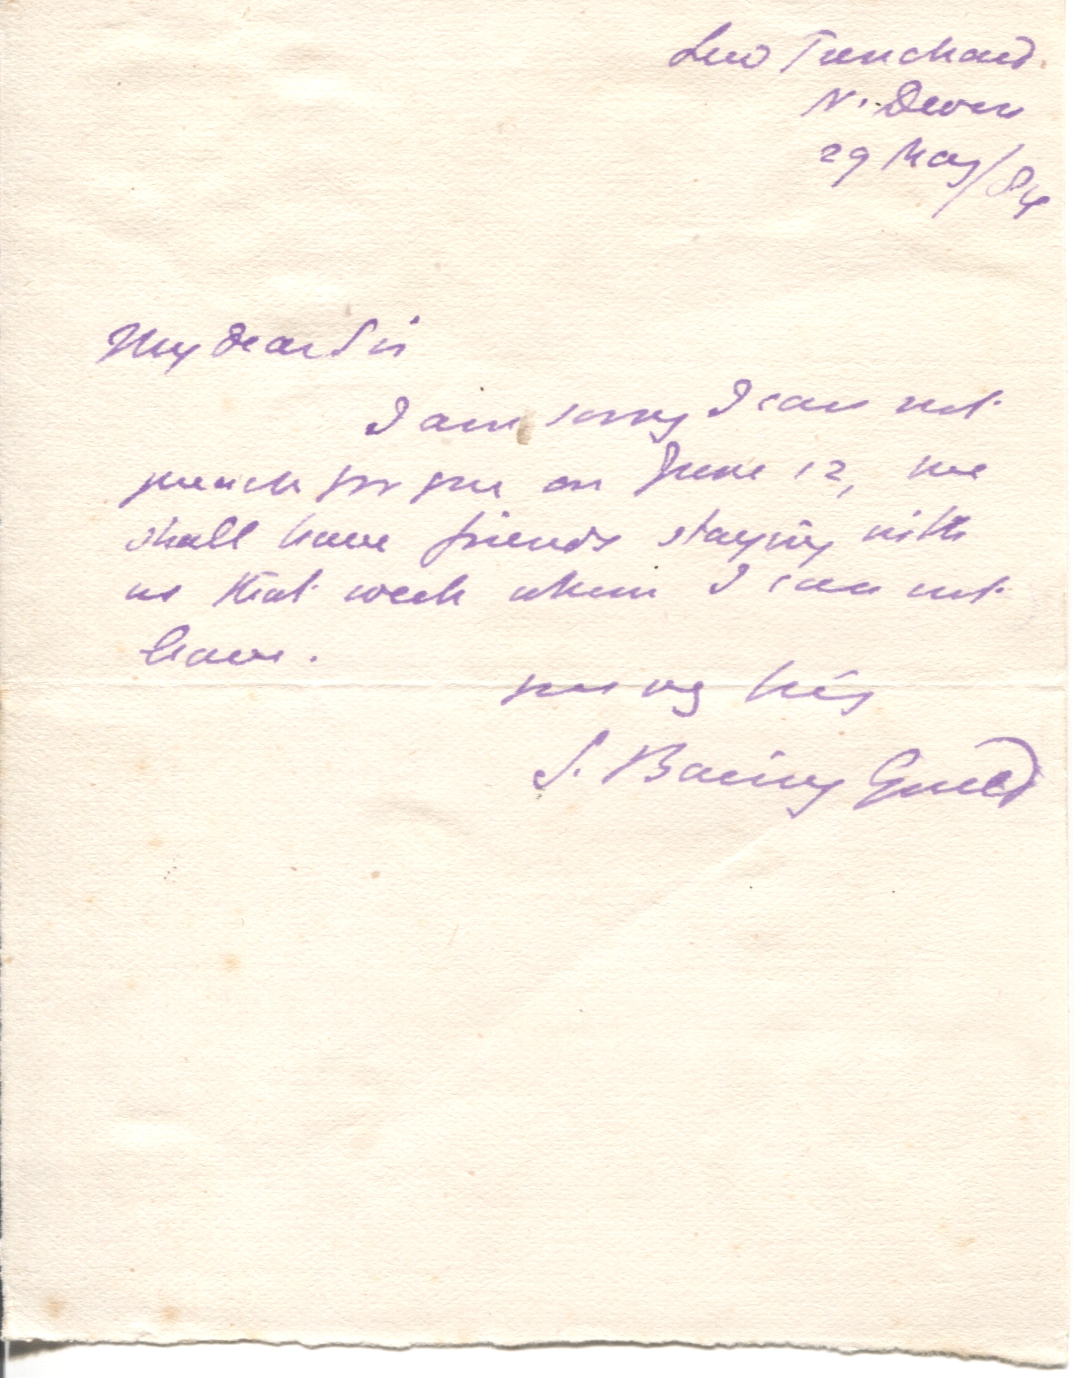 Lew Trenchard.
N. Devon
29 May/84
My dear Sir
I am sorry I can not
preach for you on June 12, we
shall have friends staying with
us that week whom I can not
leave.
yrs vy trly
S. Baring Gould